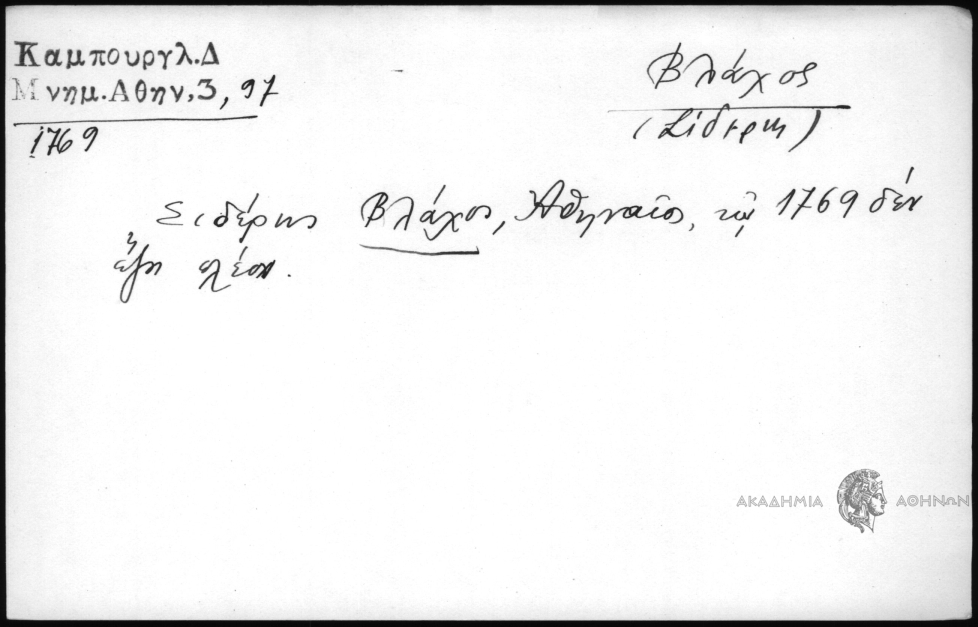 Καμπουργλ.Δ
Μνημ.Αθην.3, 97
1769
Βλάχος
(Σιδέρης)
Σιδέρης Βλάχος, Ἀθηναῖος, τῷ 1769 δέν
ἔζη πλέον.
ΑΚΑΔΗΜΙΑ ΑΘΗΝΩΝ